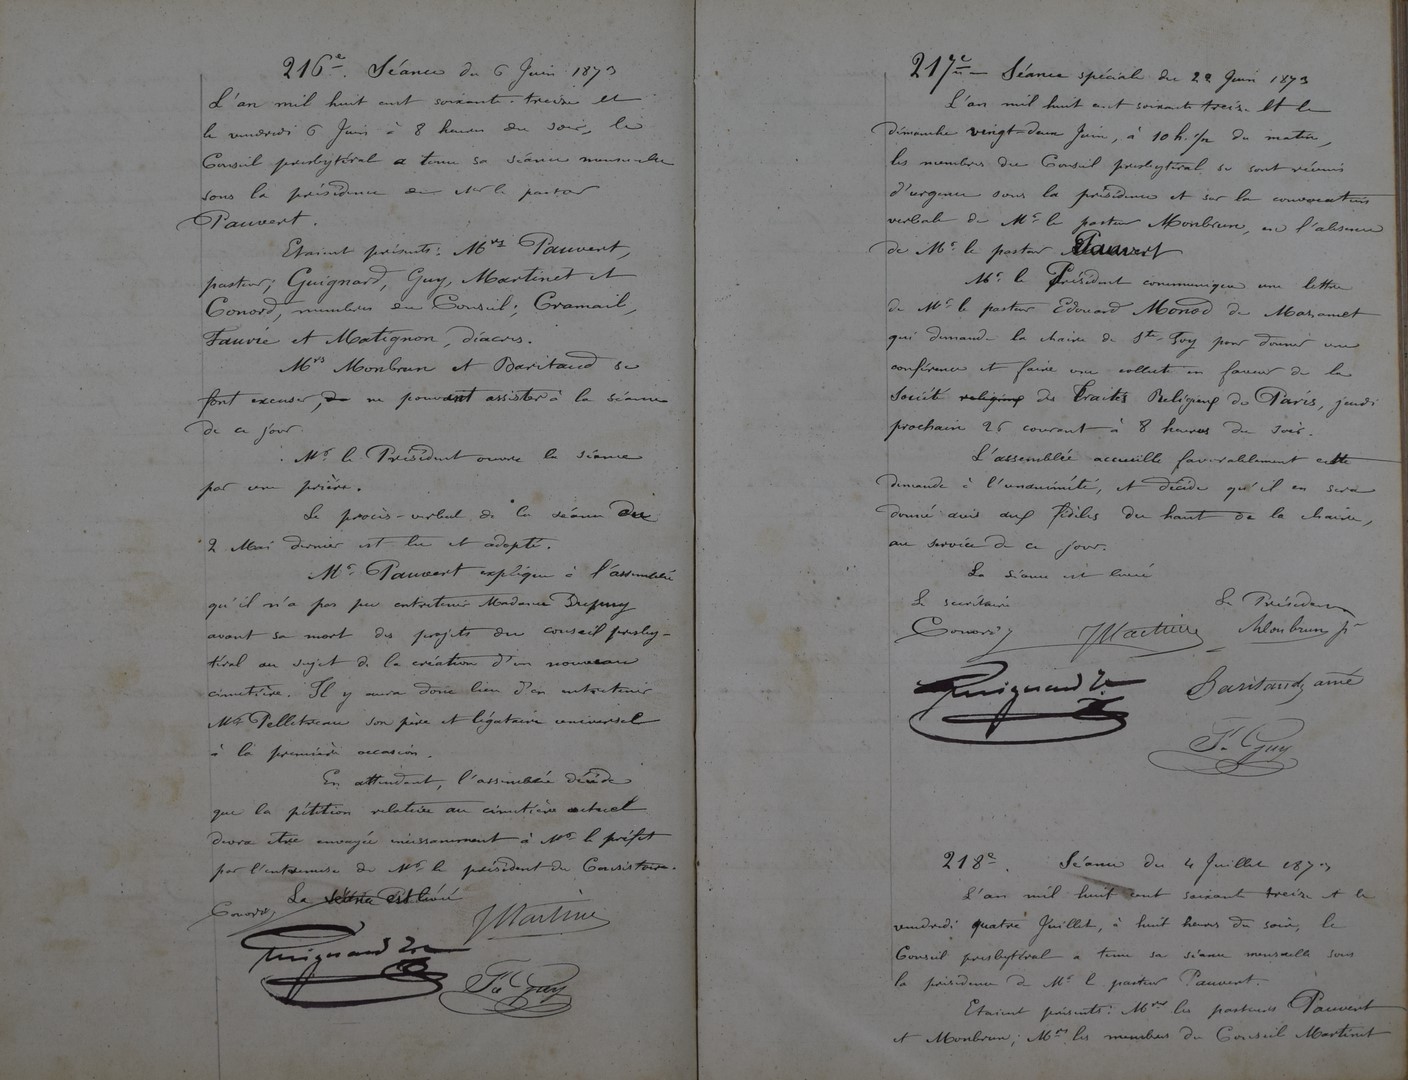 216e. Séance du 6 Juin 1873
L'an mil huit cent soixante-treize et
le vendredi 6 Juin à 8 heures du soir, le
Conseil presbytéral a tenu sa séance mensuelle
sous la présidence de Mr le pasteur
Pauvert.
Etaient présents: Mrs Pauvert,
pasteur; Guignard, Guy, Martinet et
Conord, membres du Conseil; Cramail,
Fauvie et Matignon, diacres.
Mrs Monbrun et Baritaud se
font excuser, de ne pouvant assister à la séance
de ce jour.
Mr le Président ouvre la séance
par une prière.
Le procès-verbal de la séance du
2 Mai dernier est lu et adopté.
Mr Pauvert explique à l'assemblée
qu'il n'a pas pu entretenir Madame Dupuy
avant sa mort des projets du conseil presby-
téral au sujet de la création d'un nouveau
cimetière. Il y aura donc lieu d'en entretenir
Mr Pelletreau son père et légataire universel
à la première occasion.
En attendant, l'assemblée décide
que la pétition relative au cimetière actuel
devra être envoyée incessamment à Mr le préfet
par l'entremise de Mr le président du Consistoire.
La séance est levée
Conord
JMartinet
Guignard
Fc Guy
217e - Séance spécial du 22 Juin 1873
L'an mil huit cent soixante treize et le
dimanche vingt-deux Juin, à 10 h. 1/2 du matin,
les membres du Conseil presbytéral se sont réunis
d'urgence sous la présidence et sur la convocation
verbale de Mr le pasteur Monbrun, en l'absence
de Mr le pasteur Pauvert
Mr le Président communique une lettre
de Mr le pasteur Edouard Monod de Mazamet
qui demande la chaire de Ste-Foy pour donner une
conférence et faire une collecte en faveur de la
Société religieux des Traités Religieux de Paris, jeudi
prochain 26 courant à 8 heures du soir.
L'assemblée accueille favorablement cette
demande à l'unanimité, et décide qu'il en sera
donné avis aux fidèles du haut de la chaire,
au service de ce jour.
La séance est levée
Le secrétaire
Le Président
Conord
JMartinet
Monbrun pr
Guignard
Baritaud aîné
F. Guy
218e. Séance du 4 Juillet 1873
L'an mil huit cent soixante treize et le
vendredi quatre Juillet, à huit heures du soir, le
Conseil presbytéral a tenu sa séance mensuelle sous
la présidence de Mr le pasteur Pauvert.
Etaient présents: Mrs les pasteurs Pauvert
et Monbrun; Mrs les membres du Conseil Martinet